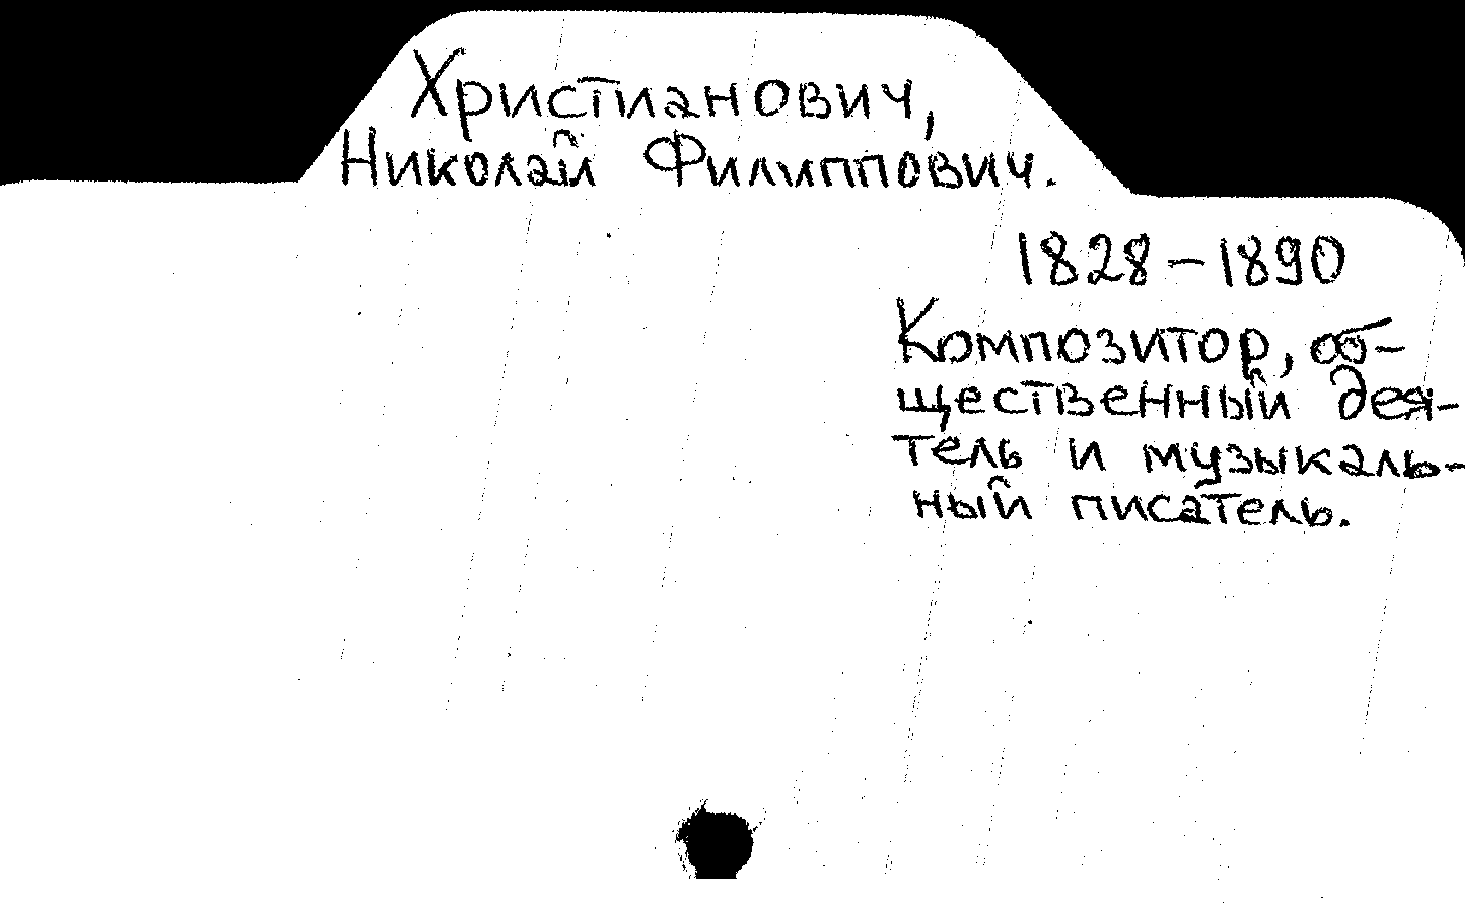 Христианович,
Николай Филиппович.
1828-1890
Композитор, об-
щественный дея-
тель и музыкаль-
ный писатель.